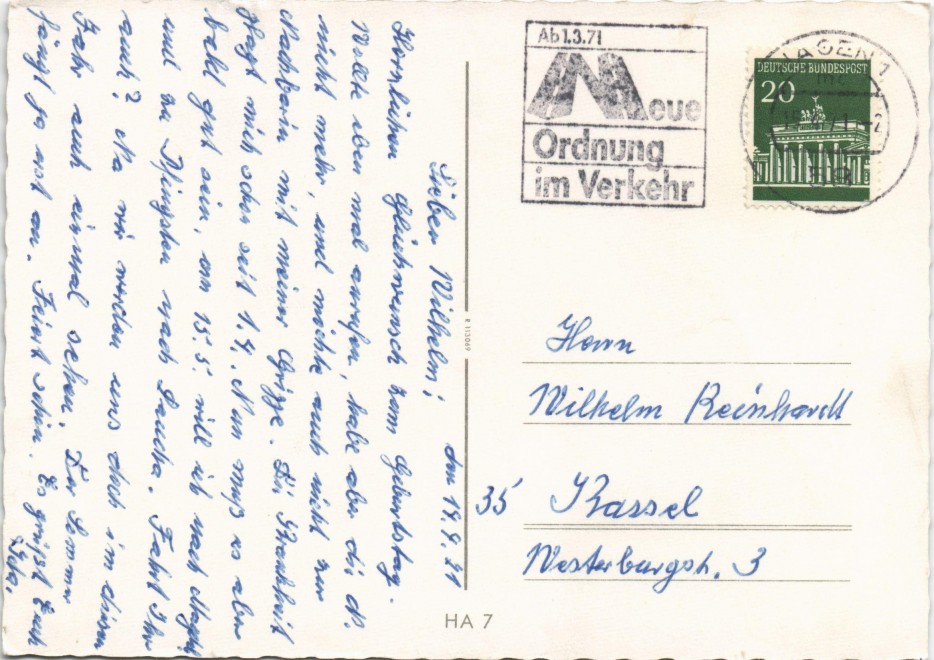 den 14.4.71
Lieber Wilhelm!
Herzlichen Glückwunsch zum Geburtstag.
Wollte eben mal anrufen, habe aber die Nr.
nicht mehr, und möchte auch nicht zur
Nachbarin mit meiner Grippe. Die Krankheit
plagt mich schon seit 1.4. Nun muß es aber
bald gut sein, am 15.5. will ich nach
und zu Pfingsten nach Laucha. Fahrt Ihr
auch? Na wir werden uns doch in diesem
Jahr auch einmal sehen. Der Sommer
fängt ja erst an. Feiert schön. Es grüßt Euch
Ab 1.3.71
Neue
Ordnung
im Verkehr
HAGEN 1
DEUTSCHE BUNDESPOST
20
R 113069
Herrn
Wilhelm Reinhardt
35 Kassel
Westerburgstr. 3
HA 7